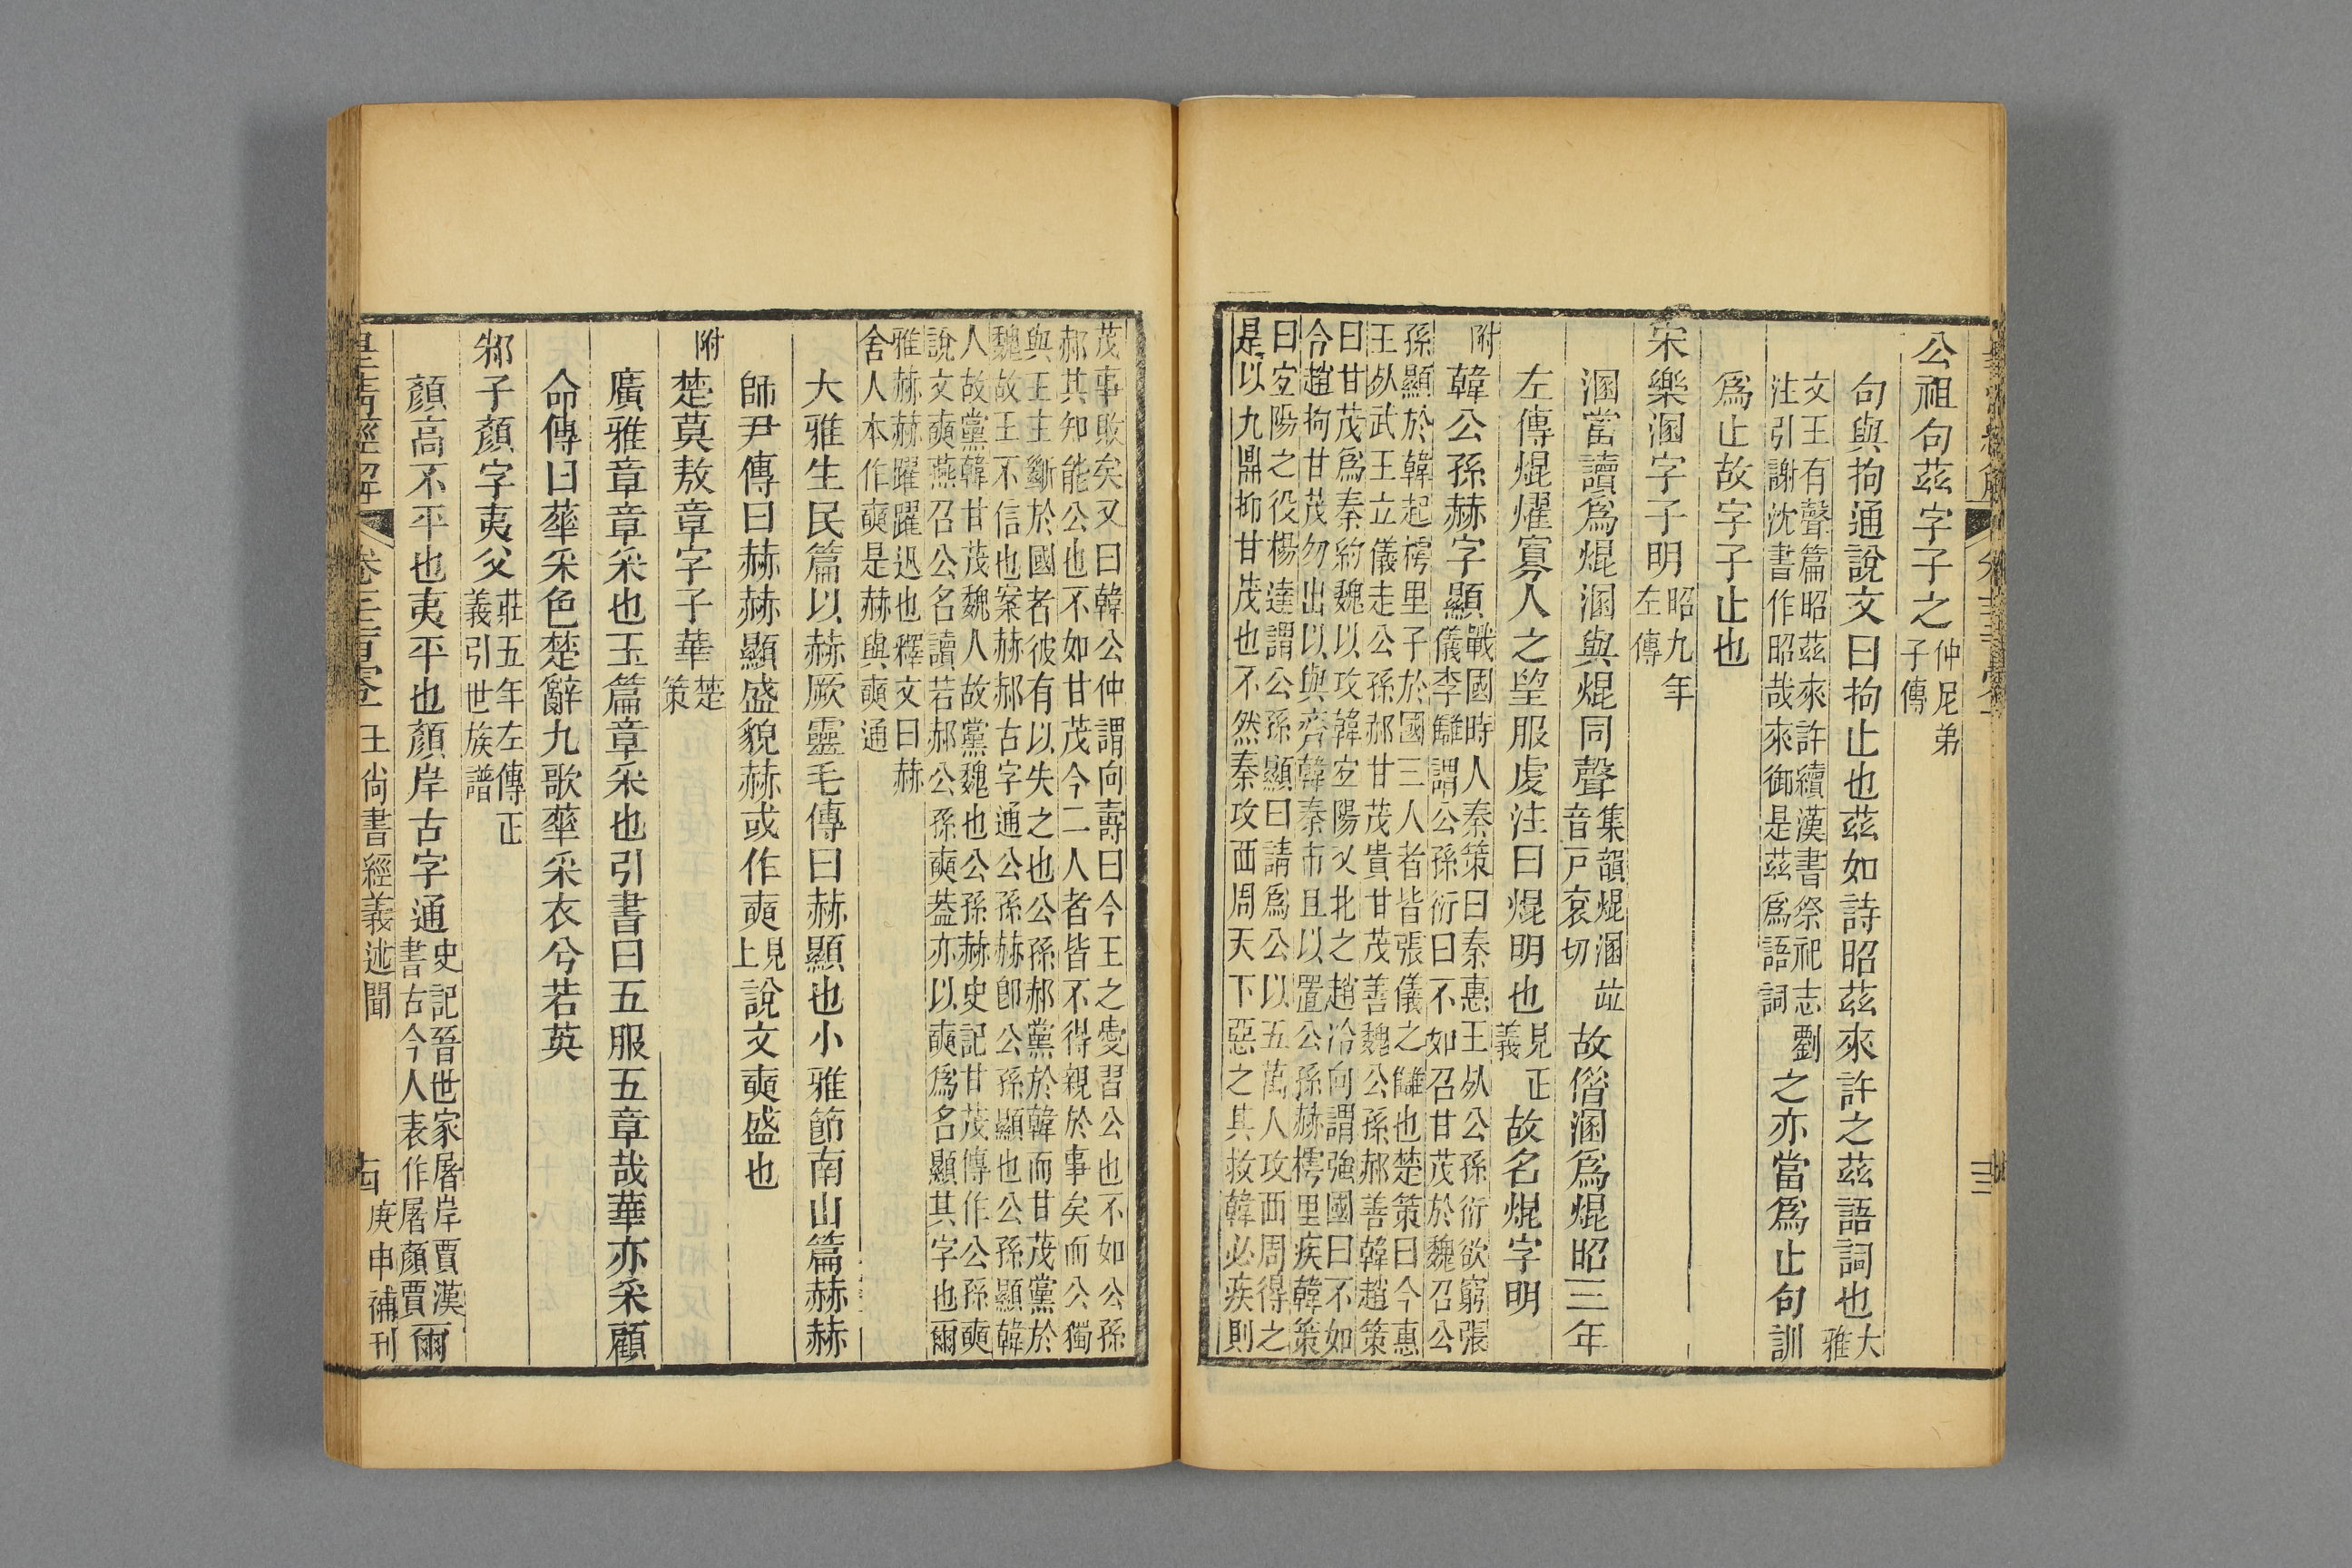 公祖句茲字子之仲尼弟
子傳
句與拘通說文曰拘止也茲如詩昭茲來許之茲語詞也大
雅
文王有聲篇昭茲來許續漢書祭祀志劉
注引謝沈書作昭哉來御是茲爲語詞之亦當爲止句訓
爲止故字子止也
宋樂溷字子明昭九年
左傳
溷當讀爲焜溷與焜同聲集韻焜溷竝
音戸袞切故偕溷爲焜昭三年
左傳焜燿寡人之望服虔注曰焜明也見正
義故名焜字明
附韓公孫赫字顯戰國時人秦策曰秦惠王㱙公孫衍欲窮張
儀李讎謂公孫衍曰不如召甘茂於魏召公
孫顯於韓起樗里子於國三人者皆張儀之讎也楚策曰今惠
王㱙武王立儀走公孫郝甘茂貴甘茂善魏公孫郝善韓趙策
曰甘茂爲秦約魏以攻韓宜陽又北之趙冷向謂強國曰不如
令趙拘甘茂勿出以與齊韓秦市且以置公孫赫樗里疾韓策
曰宜陽之役楊達謂公孫顯曰請爲公以五萬人攻西周得之
是以九鼎抑甘茂也不然秦攻西周天下惡之其救韓必疾則
茂事敗矣又曰韓公仲謂向壽曰今王之愛習公也不如公孫
郝其知能公也不如甘茂今二人者皆不得親於事矣而公獨
與王主斷於國者彼有以失之也公孫郝黨於韓而甘茂黨於
魏故王不信也案赫郝古字通公孫赫卽公孫顯也公孫顯韓
人故黨韓甘茂魏人故黨魏也公孫赫史記甘茂傳作公孫奭
說文奭燕召公名讀若郝公孫奭葢亦以奭爲名顯其字也爾
雅赫赫躍躍迅也釋文曰赫
舍人本作奭是赫與奭通
大雅生民篇以赫厥靈毛傳曰赫顯也小雅節南山篇赫赫
師尹傳曰赫赫顯盛貌赫或作奭見
上說文奭盛也
附楚莫敖章字子華楚
策
廣雅章章采也玉篇章采也引書曰五服五章哉華亦采顧
命傳曰華采色楚辭九歌華采衣兮若英
邾子顏字夷父莊五年左傳正
義引世族譜
顏高不平也夷平也顏岸古字通史記晉世家屠岸賈漢
書古今人表作屠顏賈爾
皇淸經解 卷 王尙書經義述聞 庚申補刊